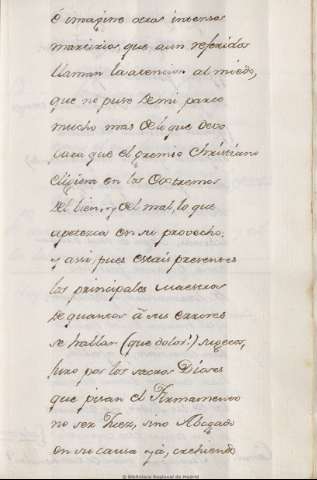 ó imagine otros intensos
martirios, que aun referidos
llaman la atencion al miedo,
que no puse de mi parte
mucho mas de lo que devo
para que el gremio Christiano
eligiera en los extremos
del bien, y del mal, lo que
apetezca en su provecho;
y assi, pues estais presentes
los principales Maestros
de quantos á sus errores
se hallan (que dolor!) sugetos,
juro por los sacros Dioses
que pisan el Firmamento
no ser Juez, sino Abogado
en su causa ya, creiendo
© Biblioteca Nacional de Madrid